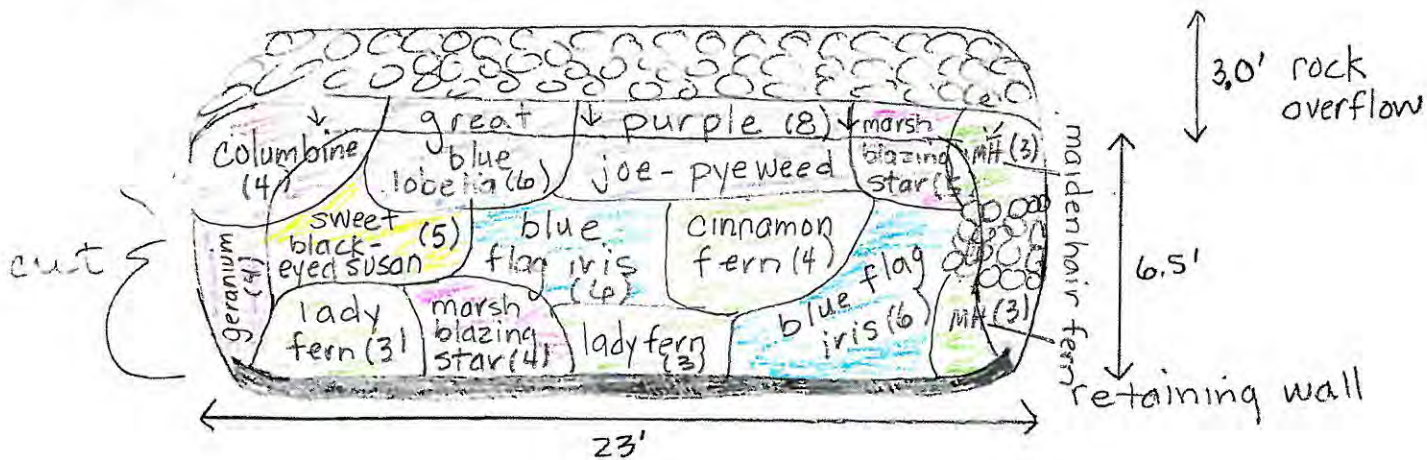 3.0' rock
overflow
columbine
(4)
great
blue
lobelia (6)
purple (8)
joe-pyeweed
marsh
blazing
star
MH (3)
maidenhair fern
sweet
black-
eyed susan
(5)
blue
flag iris
(6)
cinnamon
fern (4)
6.5'
cut
geranium
(4)
lady
fern (3)
marsh
blazing
star (4)
lady fern
(3)
blue flag
iris (6)
MH (3)
retaining wall
23'